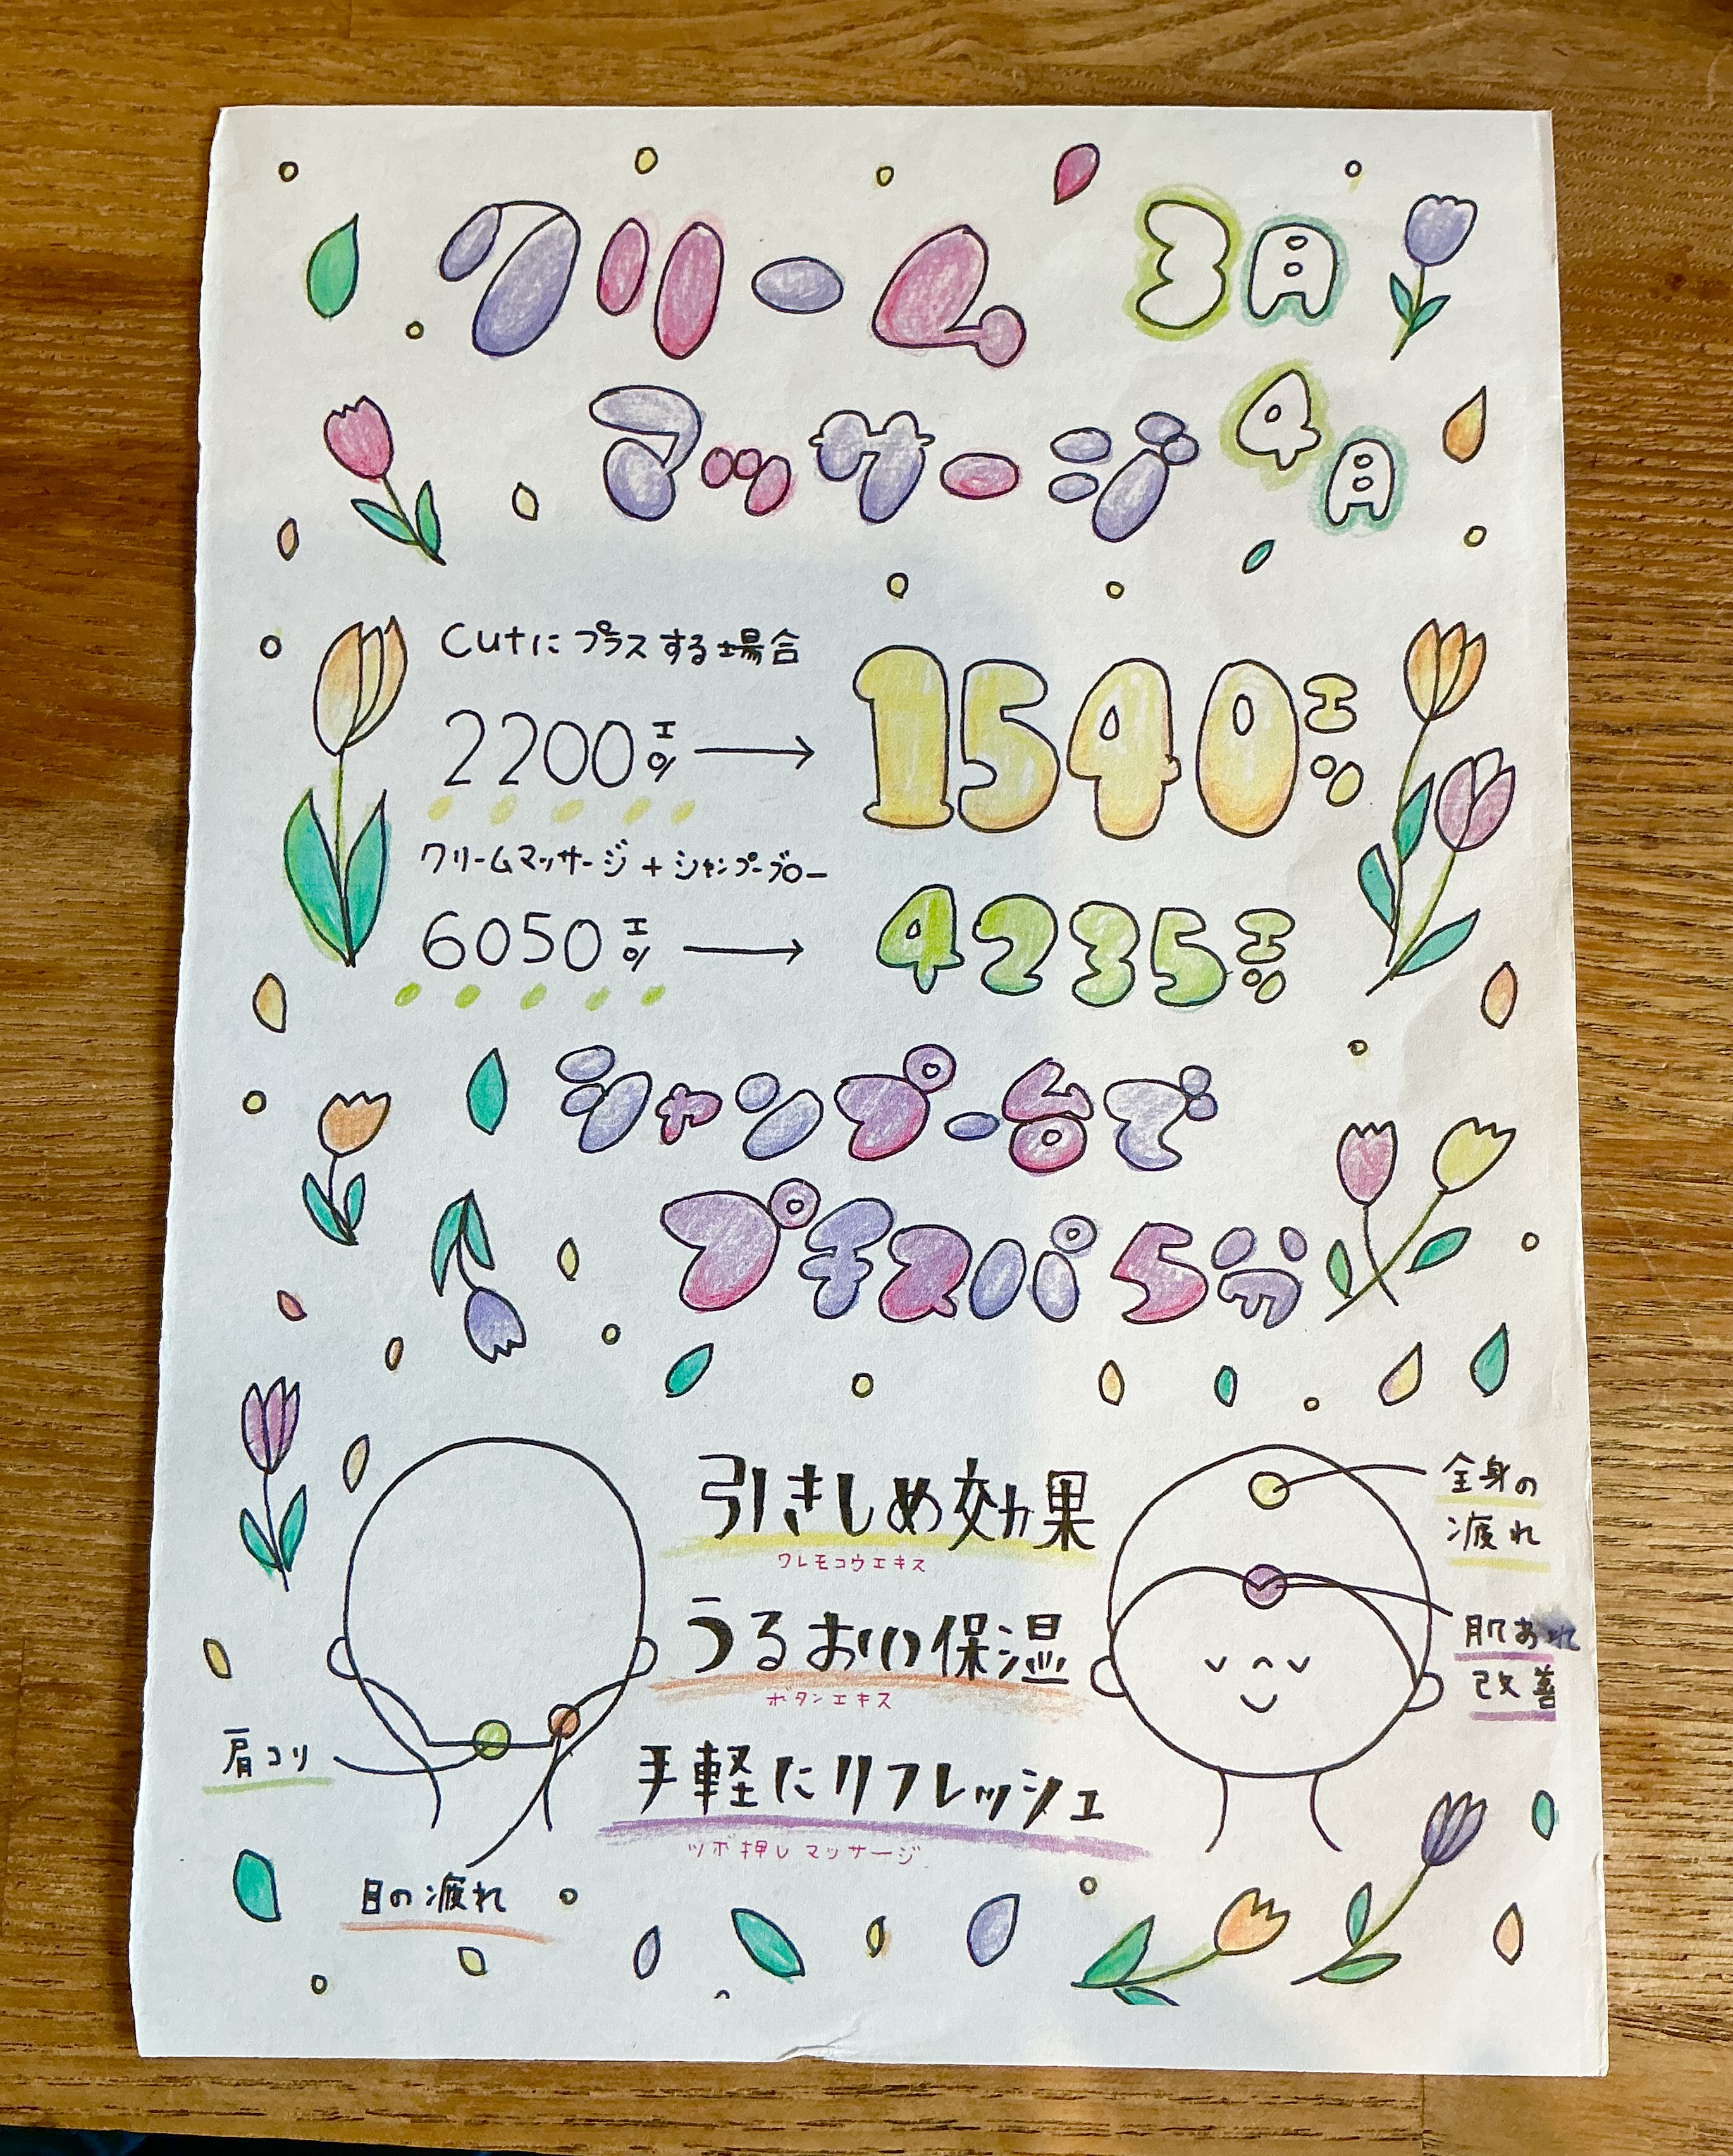 クリーム 3月
マッサージ 4月
Cutにプラスする場合
2200エン → 1540エン
クリームマッサージ + シャンプーブロー
6050エン → 4235エン
シャンプー台で
プチスパ 5分
引きしめ効果
ワレモコウエキス
うるおい保湿
ボタンエキス
手軽にリフレッシュ
ツボ押しマッサージ
肩コリ
目の疲れ
全身の
疲れ
肌あれ
改善